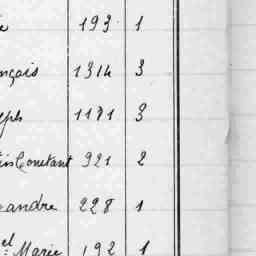 e 193 1
nçais 1314 3
eph 1171 3
Constant 921 2
andre 228 1
el Marie 192 1